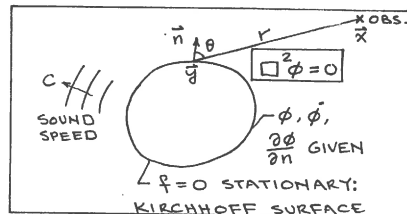 x OBS.
x⃗
r
n⃗
θ
y⃗
□²φ = 0
C
SOUND
SPEED
φ, φ̇,
∂φ/∂n GIVEN
f = 0 STATIONARY:
KIRCHHOFF SURFACE